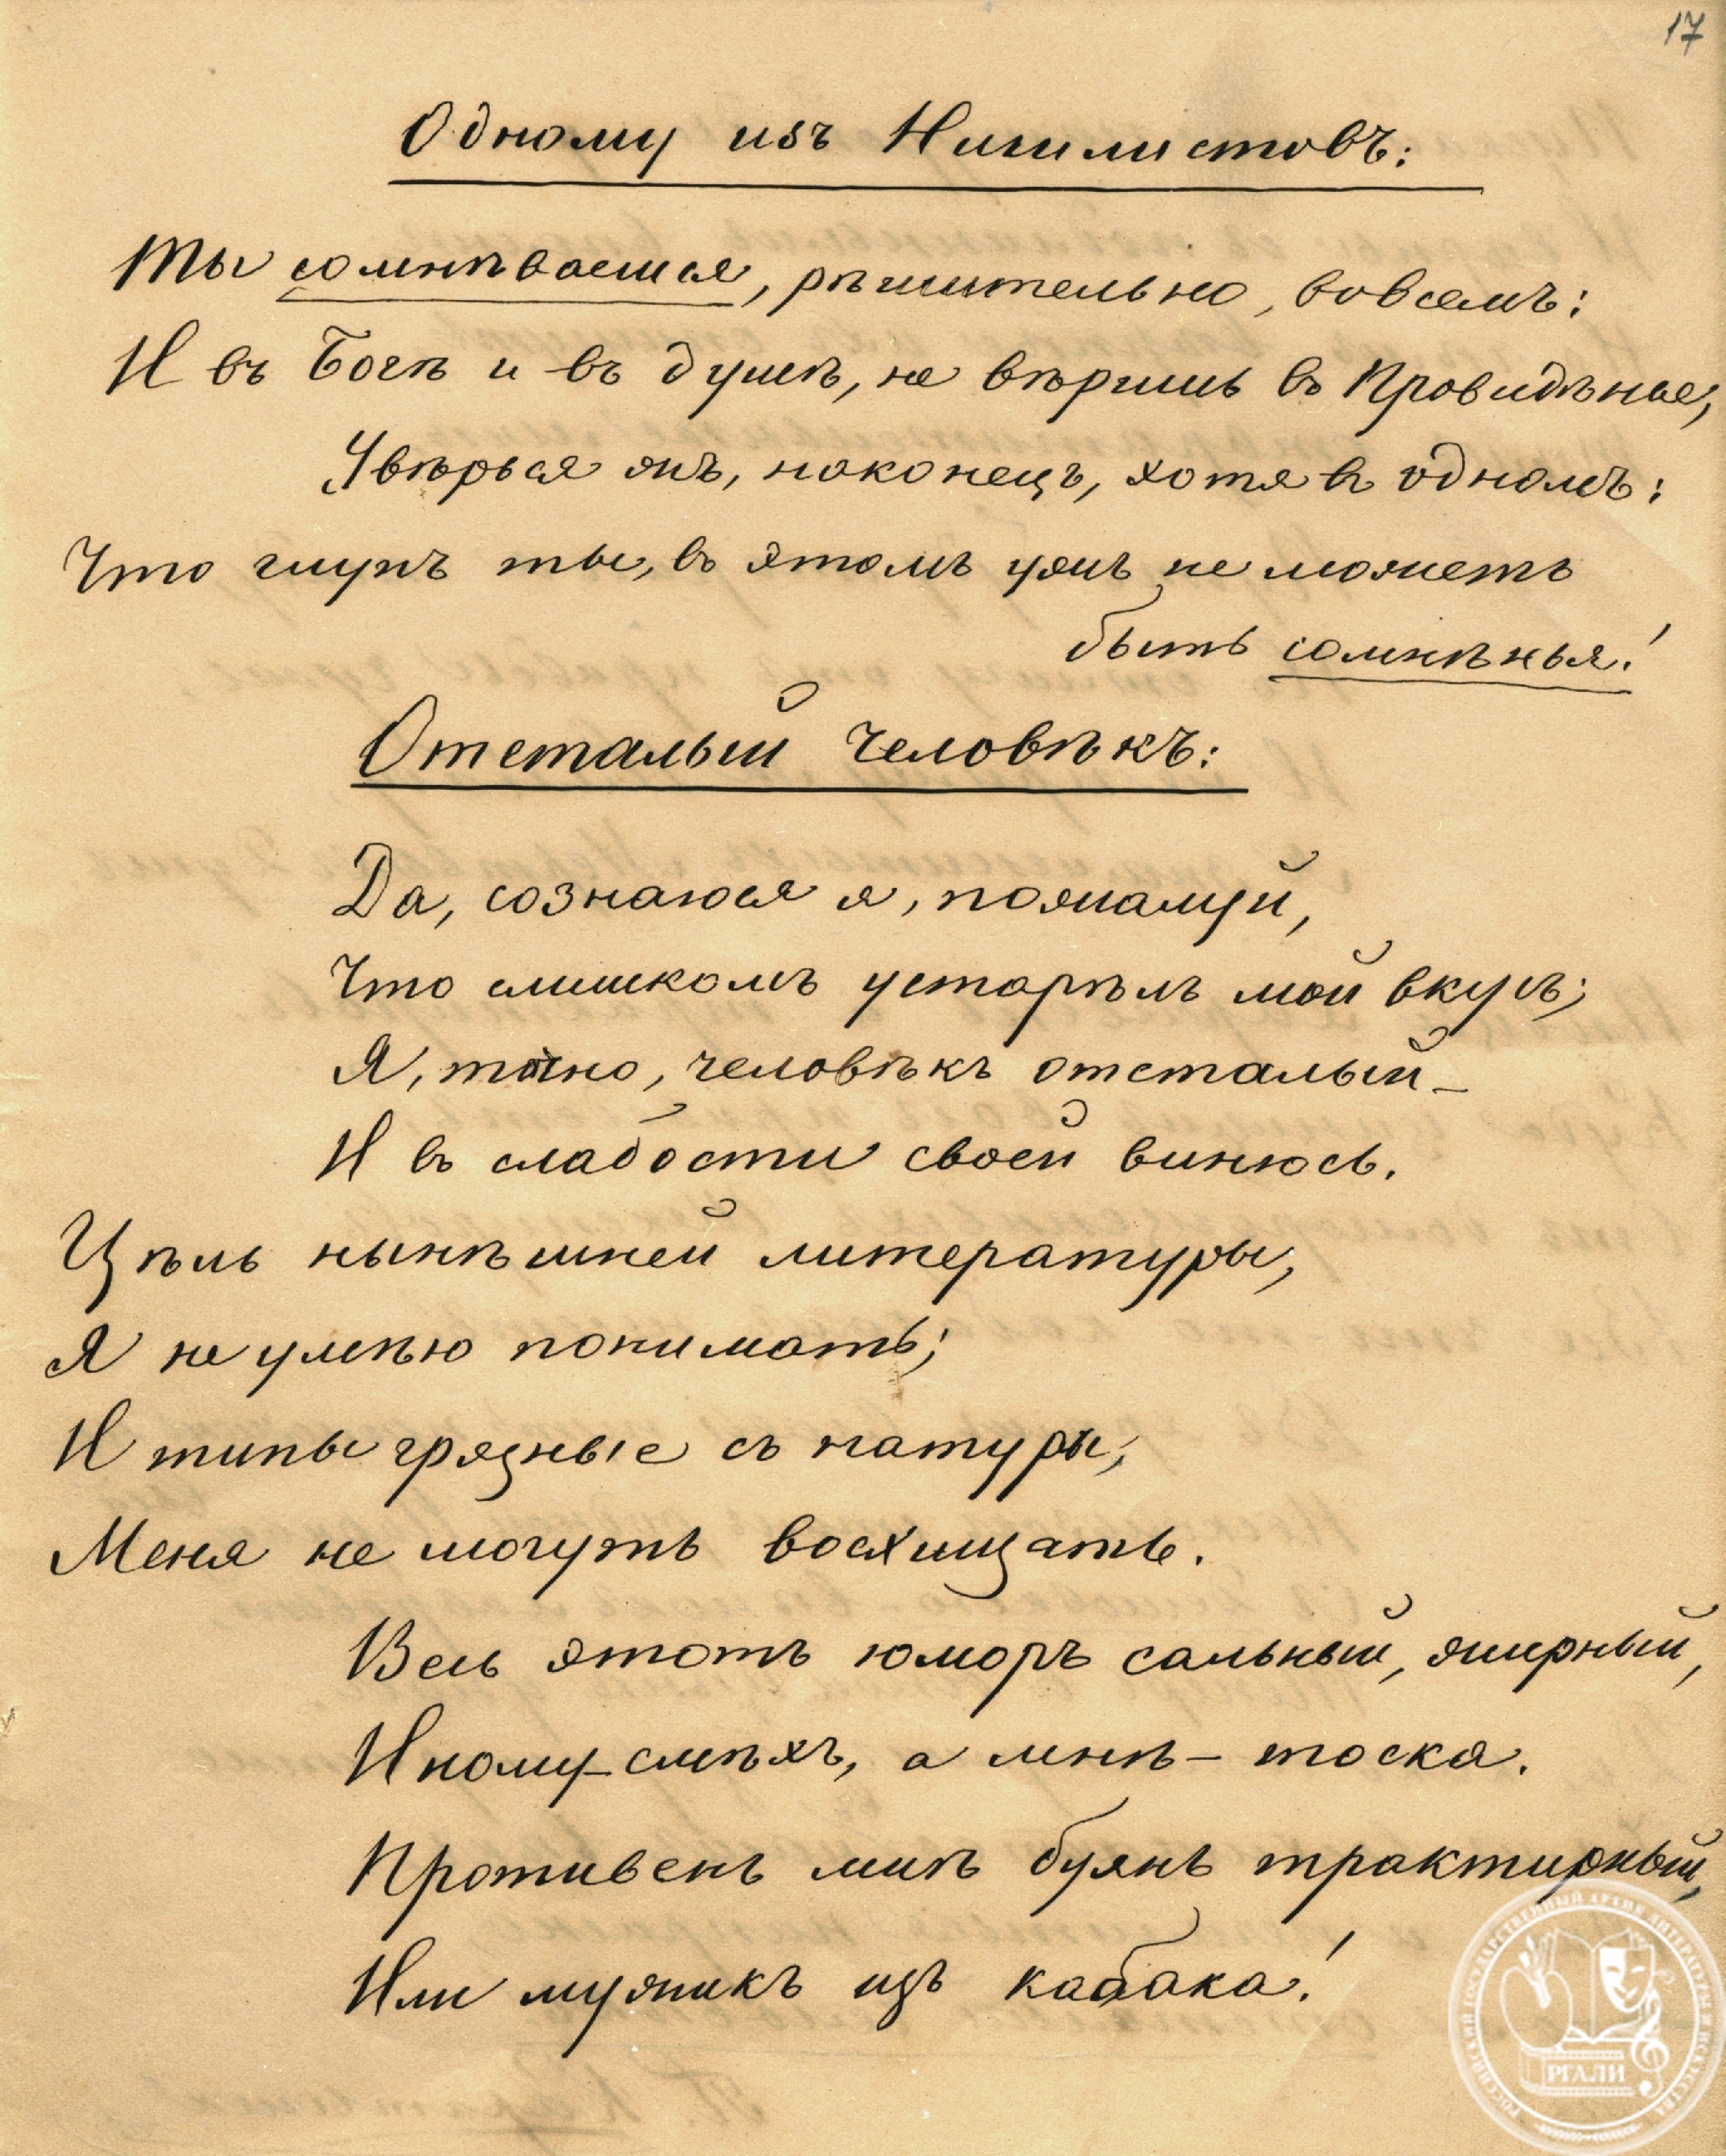 17
Одному изъ Нигилистовъ:
Ты сомнѣваешься, рѣшительно, во всемъ:
И въ Богѣ и въ душѣ, не вѣришь въ Провидѣнье,
Увѣрься жъ, наконецъ, хотя въ одномъ:
Что глупъ ты, въ этомъ ужъ не можетъ
быть сомнѣнья!
Отсталый человѣкъ:
Да, сознаюся я, пожалуй,
Что слишкомъ устарѣлъ мой вкусъ;
Я, точно, человѣкъ отсталый –
И въ слабости своей винюсь.
Цѣль нынѣшней литературы,
Я не умѣю понимать;
И типы грязные съ натуры,
Меня не могутъ восхищать.
Весь этотъ юморъ сальный, жирный,
Иному – смѣхъ, а мнѣ – тоска.
Противенъ мнѣ буянъ трактирный,
Или мужикъ изъ кабака!
РОССИЙСКИЙ ГОСУДАРСТВЕННЫЙ АРХИВ ЛИТЕРАТУРЫ И ИСКУССТВА
РГАЛИ